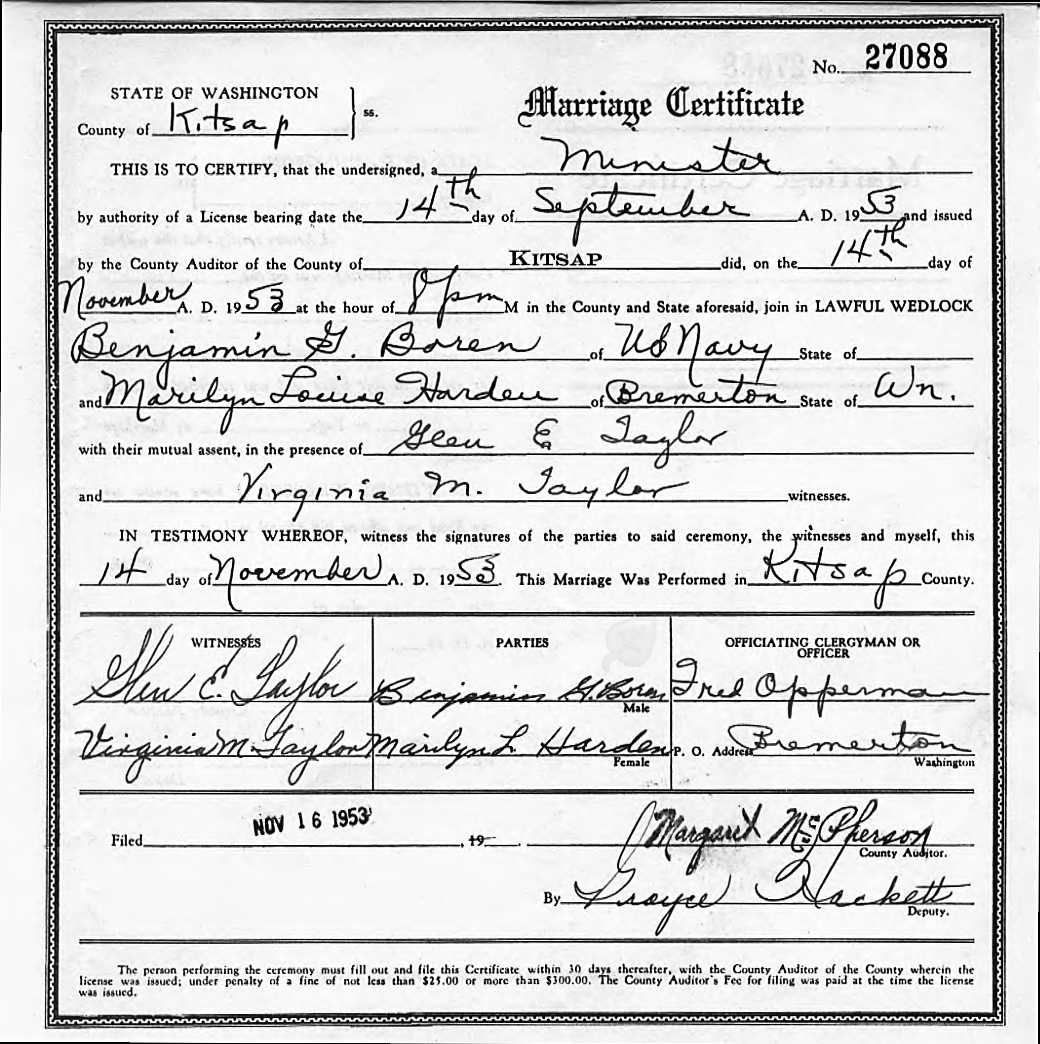 No. 27088
STATE OF WASHINGTON
County of Kitsap } ss.
Marriage Certificate
THIS IS TO CERTIFY, that the undersigned, a Minister
by authority of a License bearing date the 14th day of September A. D. 1953 and issued
by the County Auditor of the County of KITSAP did, on the 14th day of
November A. D. 1953 at the hour of 8 pm M in the County and State aforesaid, join in LAWFUL WEDLOCK
Benjamin G. Boren of US Navy State of
and Marilyn Louise Harden of Bremerton State of Wn.
with their mutual assent, in the presence of Glen E Taylor
and Virginia M. Taylor witnesses.
IN TESTIMONY WHEREOF, witness the signatures of the parties to said ceremony, the witnesses and myself, this
14 day of November A. D. 1953. This Marriage Was Performed in Kitsap County.
WITNESSES PARTIES OFFICIATING CLERGYMAN OR
OFFICER
Glen E. Taylor Benjamin G. Boren Fred Opperman
Male
Virginia M. Taylor Marilyn L Harden P. O. Address Bremerton
Female Washington
Filed NOV 16 1953, 19 . Margaret McPherson
County Auditor.
By Hackett
Deputy.
The person performing the ceremony must fill out and file this Certificate within 30 days thereafter, with the County Auditor of the County wherein the
license was issued; under penalty of a fine of not less than $25.00 or more than $300.00. The County Auditor's Fee for filing was paid at the time the license
was issued.